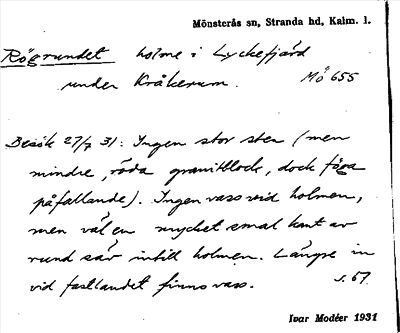 Mönsterås sn, Stranda hd, Kalm. l.
Rögrundet holme i Lyckefjärd
under Kråkerum. Mö 655
Besök 27/7 31: Ingen stor sten (men
mindre, röda granitblock, dock föga
påfallande). Ingen vass vid holmen,
men väl en mycket smal kant av
rund säv intill holmen. Längre in
vid fastlandet finns vass. s. 67.
Ivar Modéer 1931